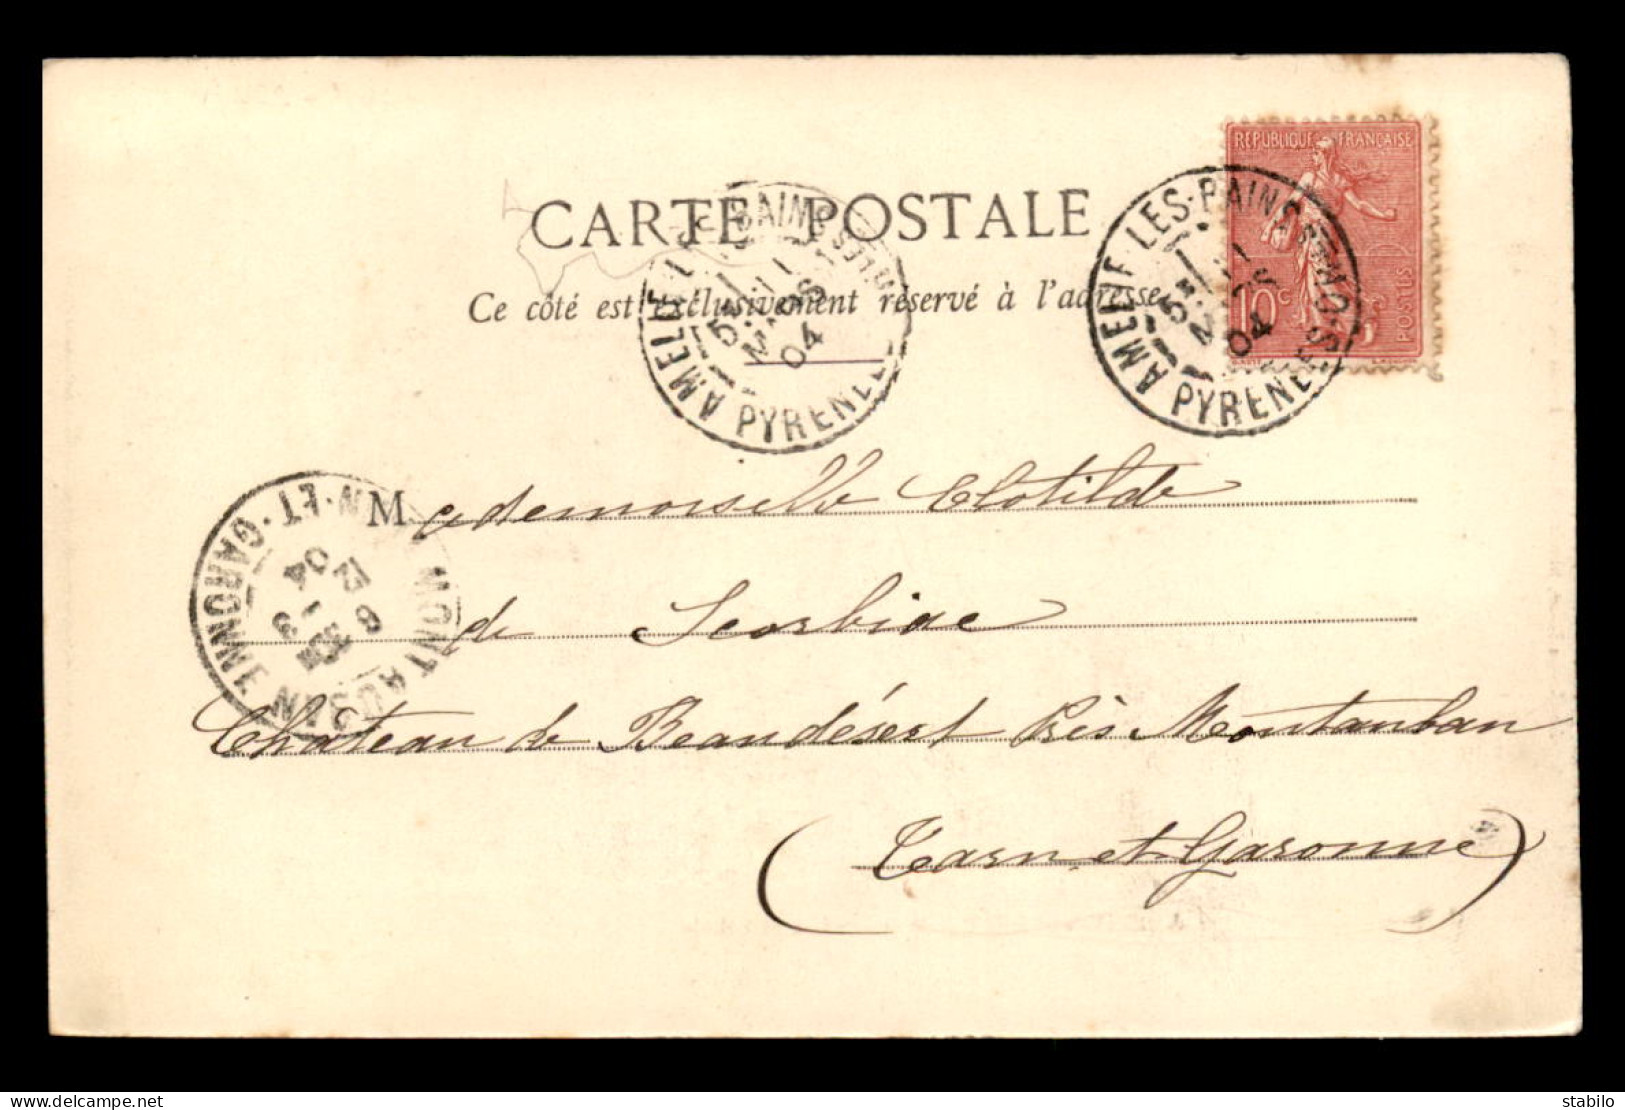 REPUBLIQUE FRANÇAISE
10 c
POSTES
AMELIE-LES-BAINS
PYRENEES-
11
MARS
04
CARTE POSTALE
Ce côté est exclusivement réservé à l'adresse
AMELIE BAINS
PYRENEE
11
MARS
04
Mademoiselle Clotilde
de Scorbiac
Château de Beaudésert Près Montauban
(Tarn et Garonne)
MONTAUBAN
N-ET-GARONNE
04
www.delcampe.net
stabilo